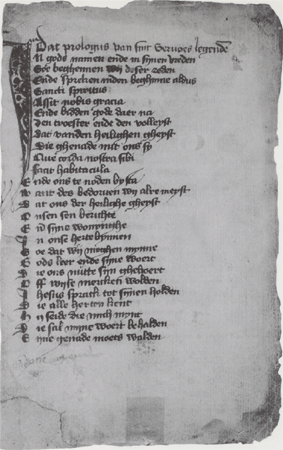 Dat prologus van sint Servoes legende
N gods namen ende in synen vreden
Soe beghennen wy deser reden
Ende spreken inden beghinne aldus
Sancti spiritus
Assit nobis gracia
Ende bidden gode daer na
Den troester ende den volleyst
Dat vanden heilighen gheyst
Die ghenade mit ons sy
Que corda nostra sibi
Faat habitacula
Ende ons te noden by sta
Want des bedorven wy alre meyst
Dat ons der heilighe gheyst
Onsen sen berichte
En syne woninghe
In onse herte
Soe dat wy moghen mynne
Gods leer ende syne woert
Die ons nutte syn ghehoert
Off wyse mercken wolden
Ihesus sprack tot synen holden
Die alle herten kent
Hy seide die mich mynt
Die sal myne woert behalden
Ende myne genade moets walden